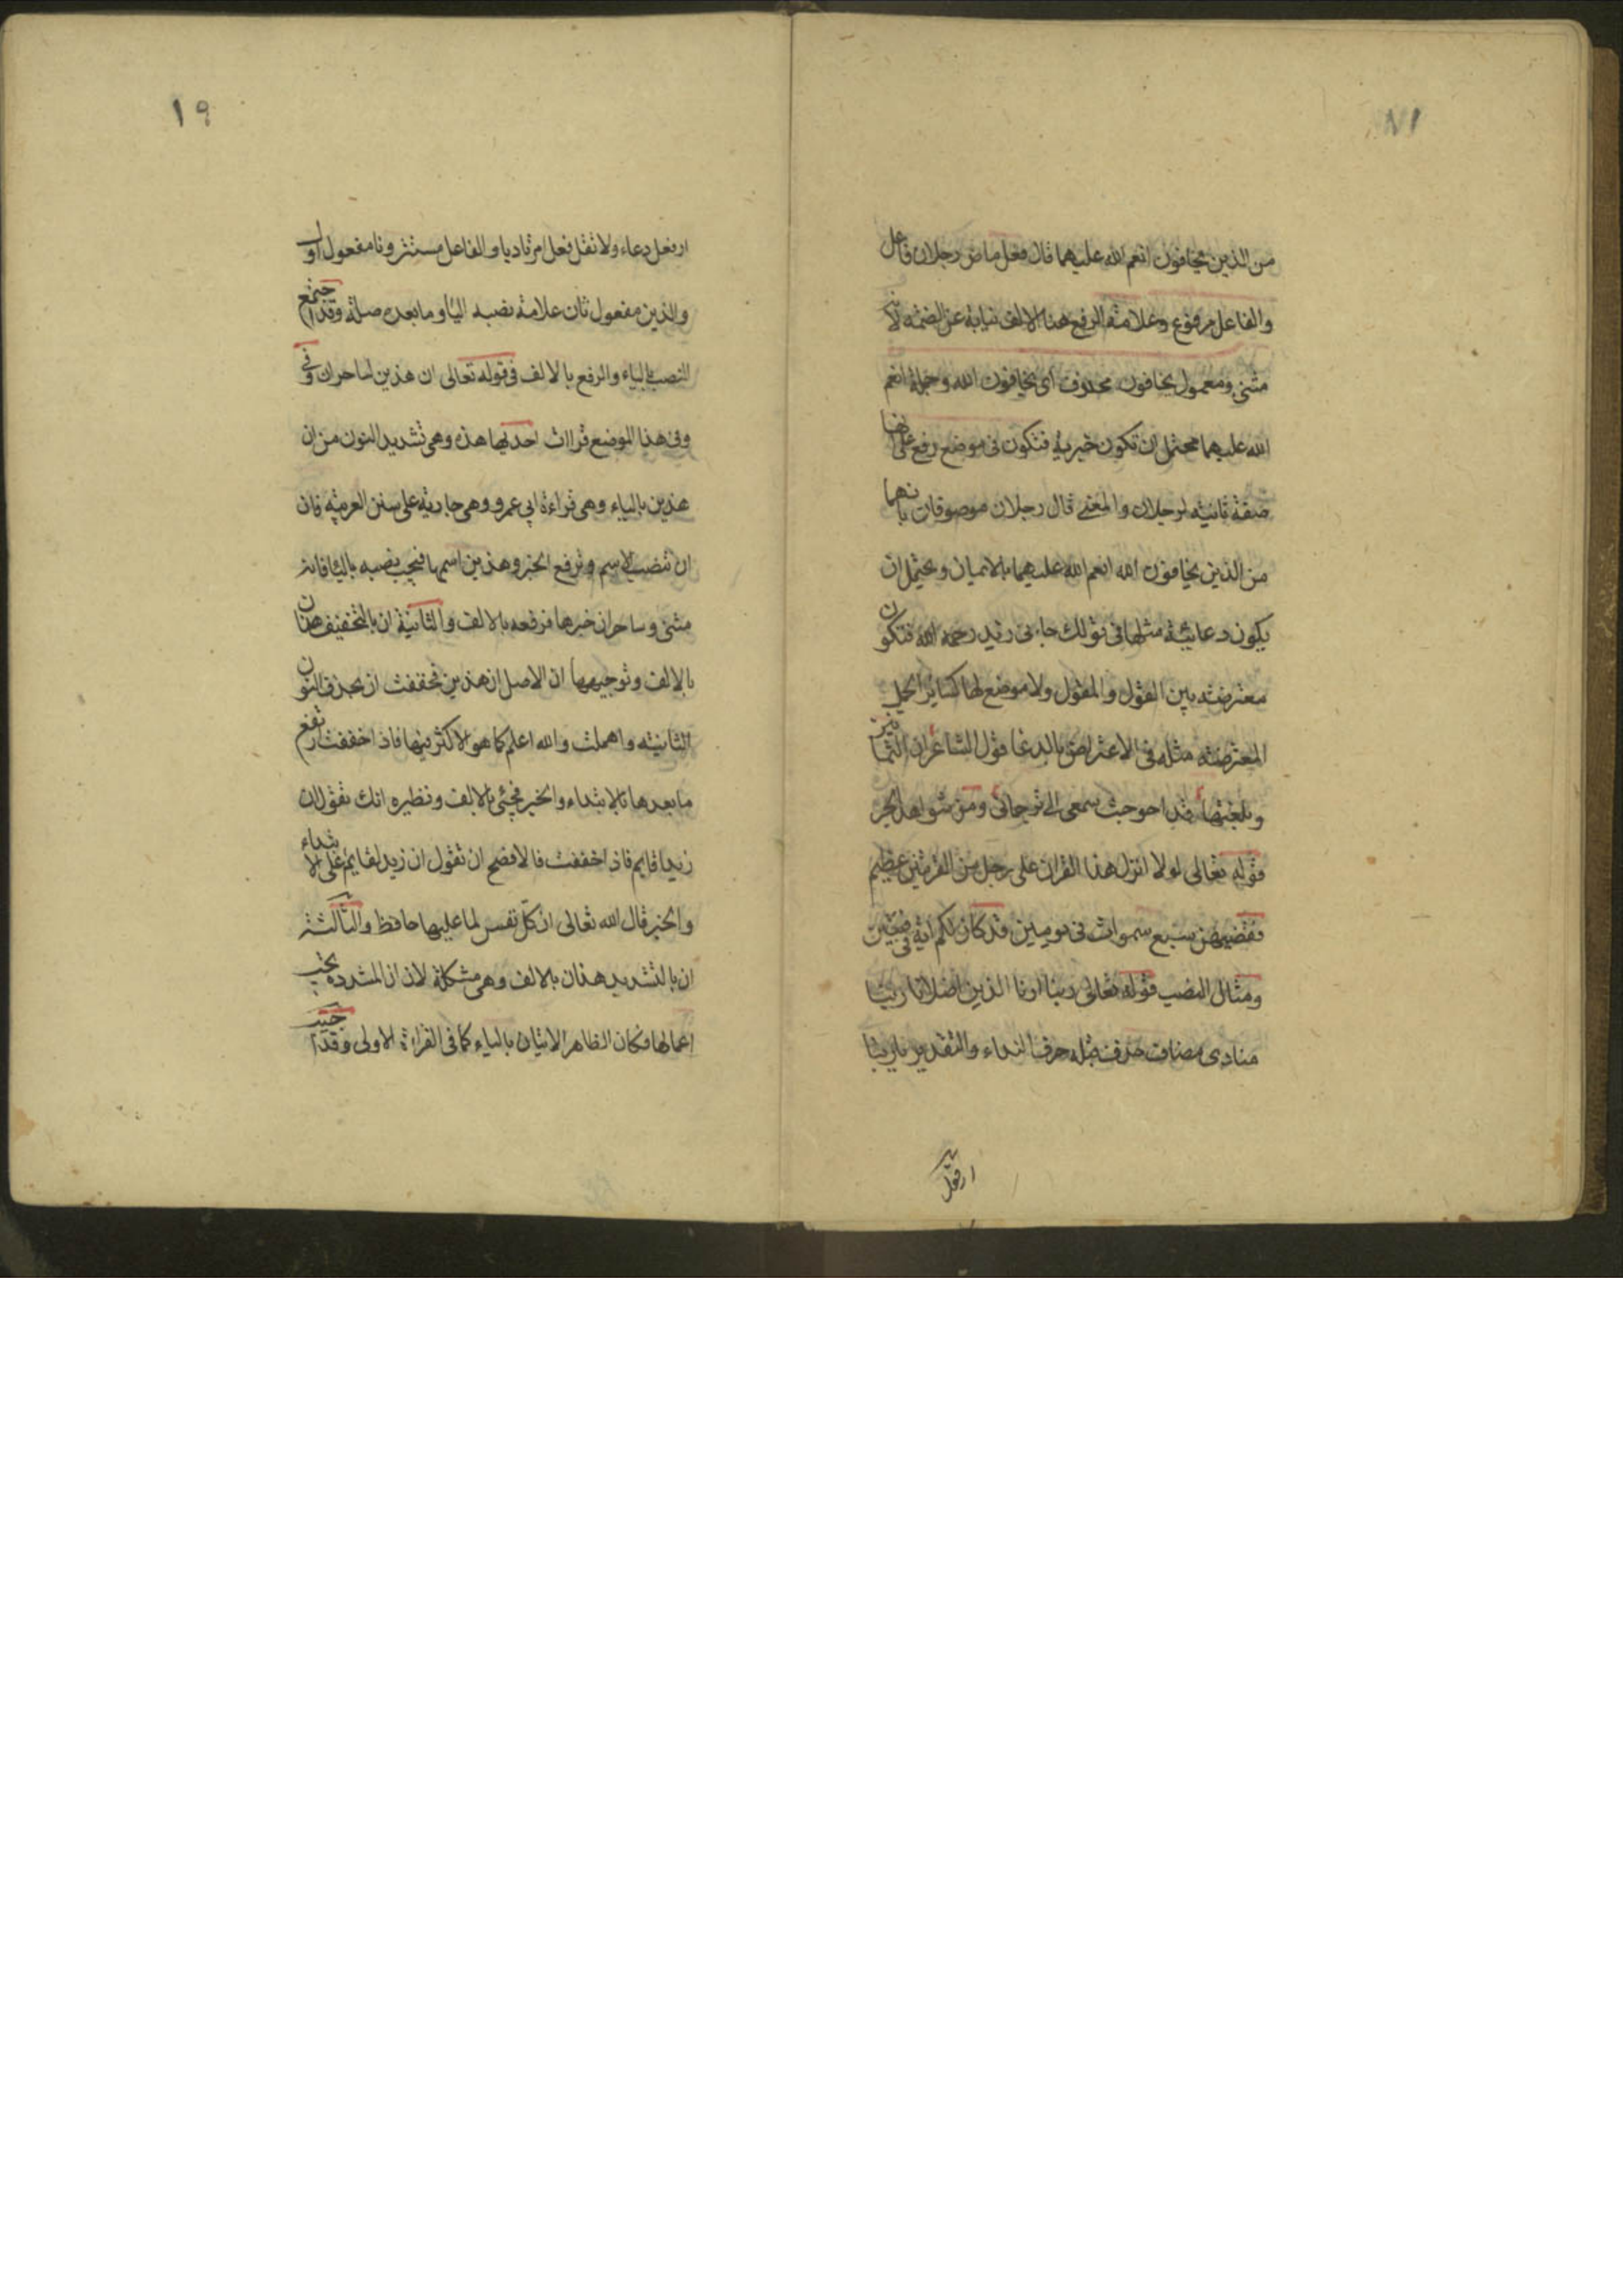 ١٨
من الذين يخافون انعم الله عليهما قال فعل ماض رجلان فاعل
والفاعل مرفوع وعلامة الرفع هنا الالف نيابة عن الضمة لانه
مثنى ومعمول يخافون محذوف اى يخافون الله وجملة انعم
الله عليهما محتمل ان تكون خبرية فتكون فى موضع رفع على انها
صفة ثانية لرجلان والمعنى قال رجلان موصوفان بانهما
من الذين يخافون الله انعم الله عليهما بالايمان ويحتمل ان
يكون دعائية مثلها فى قولك جاءنى زيد رحمه الله فتكون
معترضة بين القول والمقول ولا موضع لها كسائر الجمل
المعترضة مثله فى الاعتراض بالدعا قول الشاعر ان الثمانين
وبلغتها قد احوجت سمعى الى ترجمان ومن شواهد الجر
قوله تعالى لولا انزل هذا القران على رجل من القريتين عظيم
فقضيهن سبع سموات فى يومين قد كان لكم اية فى فئتين
ومثال النصب قوله تعالى ربنا ارنا الذين اضلانا ربنا
منادى مضاف حذف قبله حرف النداء والتقدير يا ربنا
١٩
ار فعل دعاء ولا تقل فعل امر تاديا والفاعل مستتر ونا مفعول اول
والذين مفعول ثان علامة نصبه اليا وما بعده صلة وقد اجتمع
النصب بالياء والرفع بالالف فى قوله تعالى ان هذين لساحران وفى
وفى هذا الموضع قراات احديها هذه وهى تشديد النون من ان
هذين بالياء وهى قراءة ابى عمرو وهى جارية على سنن العربية فان
ان تنصب الاسم وترفع الخبر وهذين اسمها فيجب نصبه بالياء فانه
مثنى وساحران خبرها فرفعه بالالف والثانية ان بالتخفيف هذان
بالالف وتوجيهها ان الاصل ان هذين فخففت ان بحذف النون
الثانية واهملت والله اعلم كما هو الاكثر فيها فاذ اخففت رتفع
ما بعدها بالابتداء والخبر فجئى بالالف ونظيره انك تقول ان
زيدا قايم فاذ اخففت فالافصح ان تقول ان زيد لقايم على الابتداء
والخبر قال الله تعالى ان كل نفس لما عليها حافظ والثالثة
ان بالتشديد هذان بالالف وهى مشكلة لان ان المشدده يجب
اعمالها فكان الظاهر الاتيان بالياء كما فى القراءة الاولى وقد اجيب